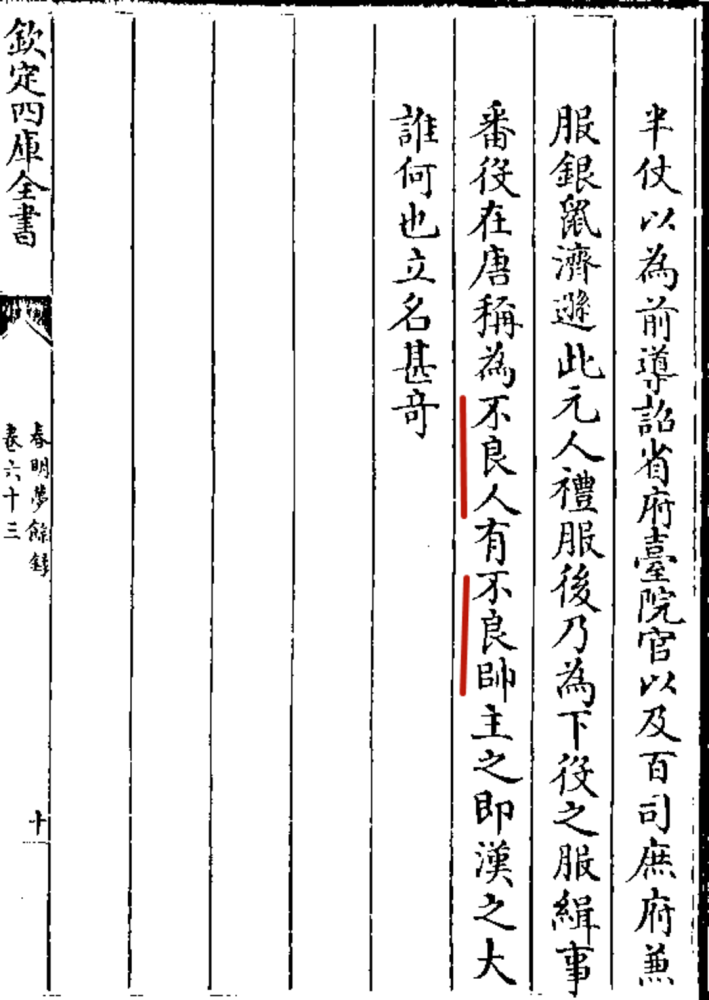 半仗以為前導詔省府臺院官以及百司庶府兼
服銀鼠濟遜此元人禮服後乃為下役之服緝事
番役在唐稱為不良人有不良帥主之即漢之大
誰何也立名甚奇
欽定四庫全書
春明夢餘録
卷六十三
十